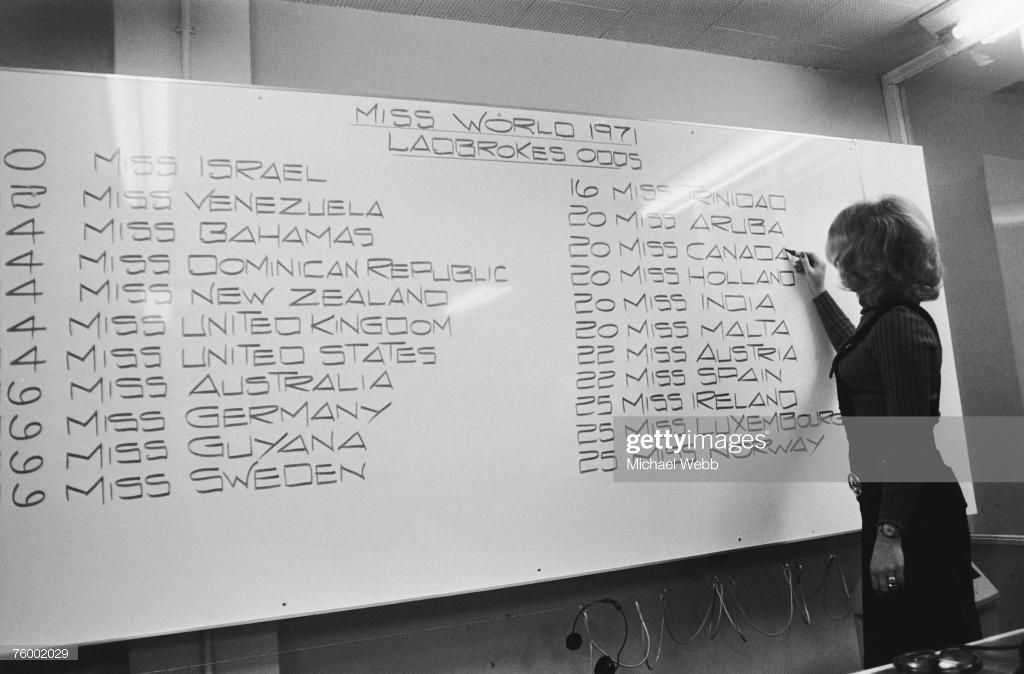 MISS WORLD 1971
LADBROKES ODDS
0 MISS ISRAEL
12 MISS VENEZUELA
4 MISS BAHAMAS
4 MISS DOMINICAN REPUBLIC
4 MISS NEW ZEALAND
4 MISS UNITED KINGDOM
4 MISS UNITED STATES
9 MISS AUSTRALIA
9 MISS GERMANY
9 MISS GUYANA
9 MISS SWEDEN
16 MISS TRINIDAD
20 MISS ARUBA
20 MISS CANADA
20 MISS HOLLAND
20 MISS INDIA
20 MISS MALTA
22 MISS AUSTRIA
22 MISS SPAIN
25 MISS IRELAND
25 MISS LUXEMBOURG
25 MISS NORWAY
gettyimages
Michael Webb
76002029